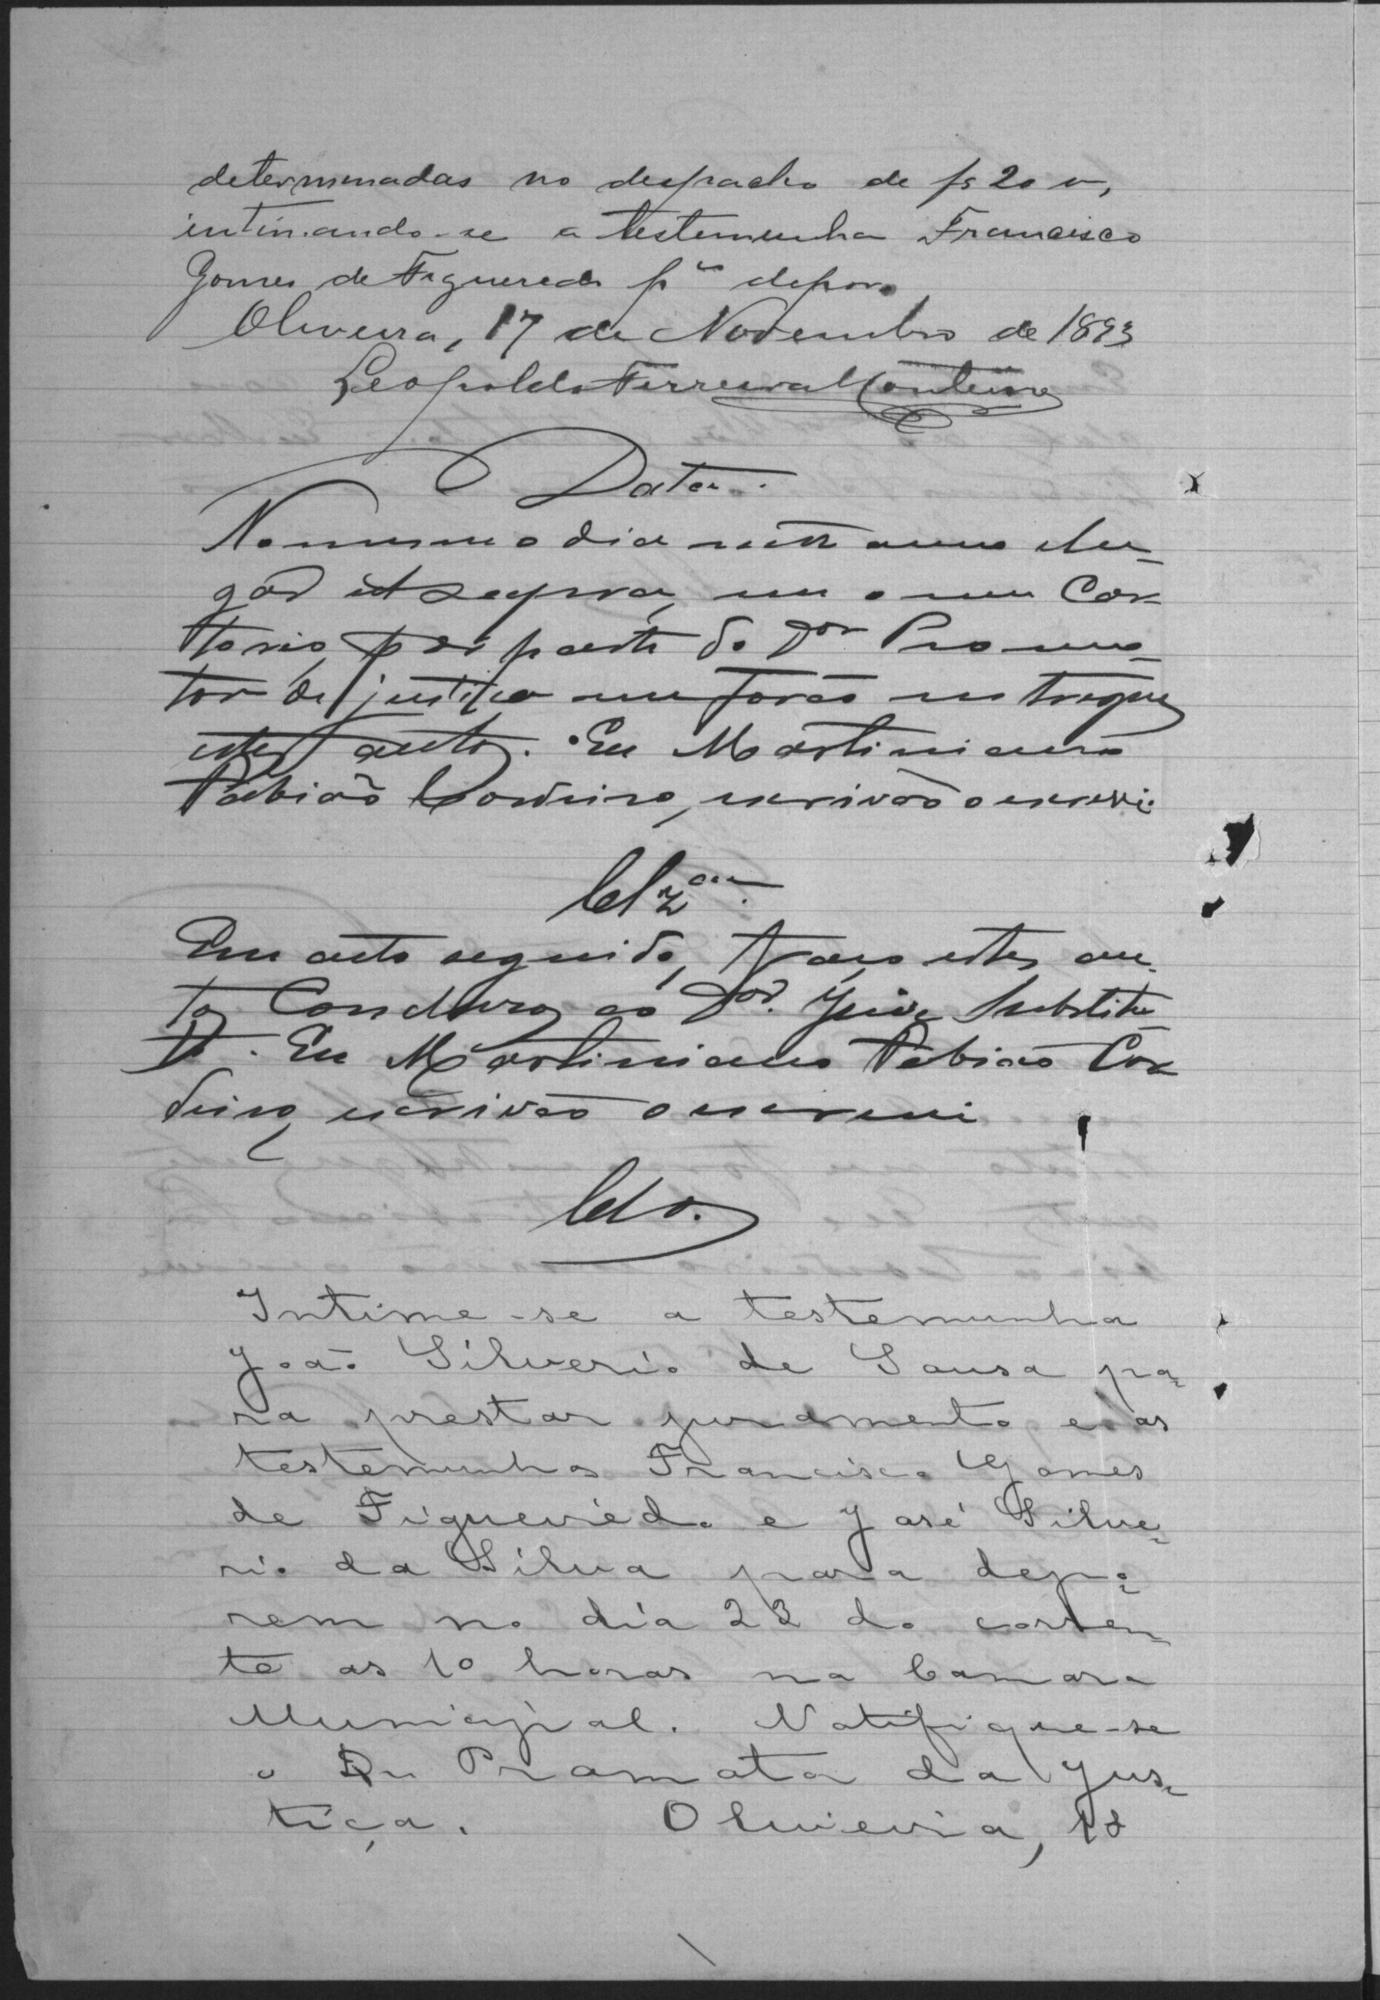 determinadas no despacho de fs 20 v,
intimando-se a testemunha Francisco
Gomes de Figueredo pª depor.
Oliveira, 17 de Novembro de 1893
Leopoldo Ferreira Monteiro
Data.
No mesmo dia mez anno e lu-
gar et supra, em o meu Car-
torio, por parte do Dor Promo-
tor de justiça me forão entregues
estes autos. Eu Martiniano
Fabião Cordeiro, escrivão o escrevi.
Clzam.
Em acto seguido, faço estes au-
tos Conclusos ao Dor. Juiz Substitu
to. Eu Martiniano Fabião Cor
deiro, escrivão o escrevi
Clo.
Intime-se a testemunha
João Silverio de Sousa pa-
ra prestar juramento e as
testemunhas Francisco Gomes
de Figueiredo e José Silve-
rio da Silva para depo-
rem no dia 22 do corren-
te as 10 horas na Camara
Municipal. Notifique-se
o Dr Promotor da Jus-
tiça. Oliveira, 18